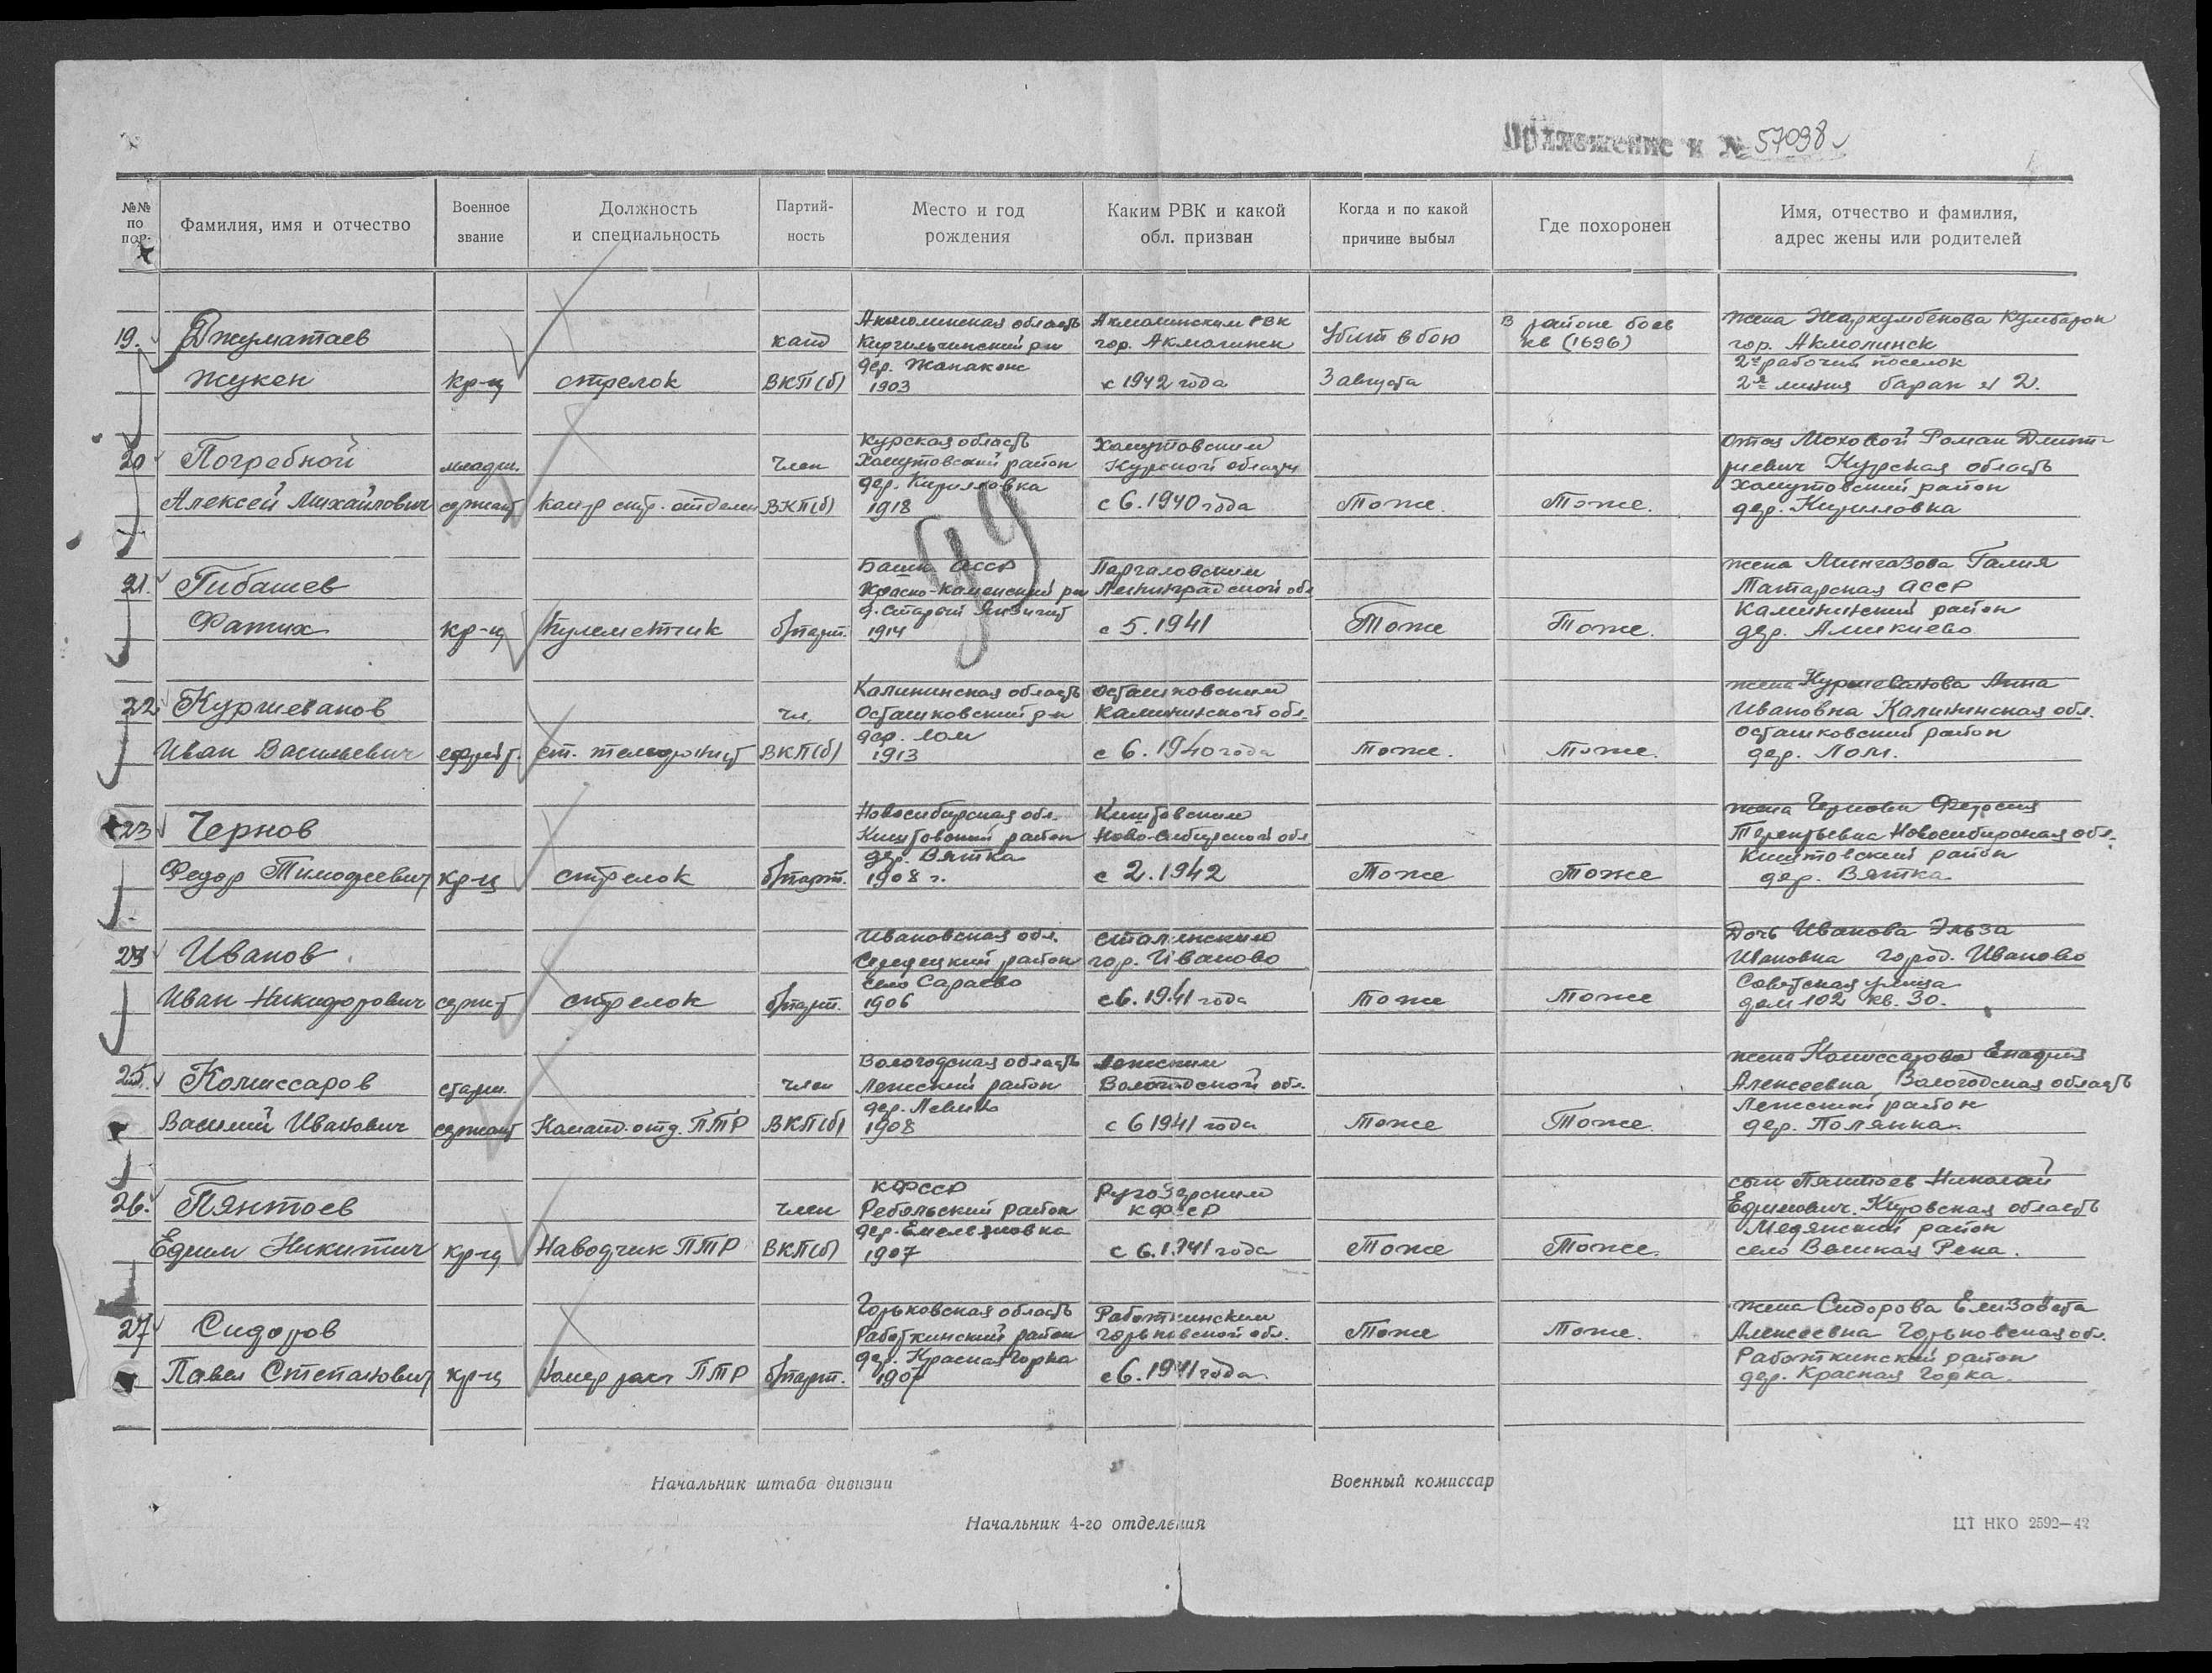 Приложение к № 57098
№№ по пор.
Фамилия, имя и отчество
Военное звание
Должность и специальность
Партий-ность
Место и год рождения
Каким РВК и какой обл. призван
Когда и по какой причине выбыл
Где похоронен
Имя, отчество и фамилия, адрес жены или родителей
19. Джуматаев
Жукен
кр-ц
стрелок
канд
ВКП(б)
Акмолинская область
дер.
1903
Акмолинским РВК
гор. Акмолинск
с 1942 года
Убит в бою
3 августа
В районе боев
кв (1696)
жена
гор. Акмолинск
2й рабочий поселок
2я линия барак № 2.
20 Погребной
Алексей Михайлович
младш.
сержант
ком-р стр. отделен
член
ВКП(б)
Курская область
Хомутовский район
дер. Кирилловка
1918
Хомутовским
Курской области
с 6.1940 года
Тоже.
Тоже.
отец Моховой Роман Дмит-
риевич Курская область
Хомутовский район
дер. Кирилловка
99
21. Гибашев
Фатих
кр-ц
пулеметчик
б/парт.
Башк. АССР
Красно-Каменский р-н
1914
Парголовским
Ленинградской обл
с 5.1941
Тоже
Тоже.
жена Мингазова Галия
Татарская АССР
Калининский район
дер. Амикиево
22. Куршеванов
Иван Васильевич
ефрейт.
ст. телефонист
чл.
ВКП(б)
Калининская область
Осташковский р-н
дер. Лом
1913
Осташковским
Калининской обл.
с 6.1940 года
Тоже.
Тоже.
жена Куршеванова Анна
Ивановна Калининская обл.
Осташковский район
дер. Лом.
23 Чернов
Федор Тимофеевич
кр-ц
стрелок
б/парт.
Новосибирская обл.
Киштовский район
дер. Вятка
1908 г.
Киштовским
Ново-Сибирской обл
с 2.1942
Тоже
Тоже
жена Чернова
Терентьевна Новосибирская обл.
Киштовский район
дер. Вятка
24 Иванов
Иван Никифорович
серж-т
стрелок
б/парт.
Ивановская обл.
Середецкий район
село Сараево
1906
Сталинским
гор. Иваново
с 6.1941 года
Тоже
Тоже
Дочь Иванова Эльза
Ивановна город. Иваново
Советская улица
дом 102 кв. 30.
25. Комиссаров
Василий Иванович
старш.
сержант
Команд. отд. ПТР
член
ВКП(б)
Вологодская область
Лежский район
дер.
1908
Лежским
Вологодской обл.
с 6 1941 года
Тоже
Тоже.
жена Комиссарова
Алексеевна Вологодская область
Лежский район
дер. Полянка.
26. Пянтоев
Ефим Никитич
кр-ц
Наводчик ПТР
член
ВКП(б)
КФССР
Ребольский район
дер. Емельяновка
1907
Ругозерским
КФССР
с 6.1941 года
Тоже
Тоже.
сын Пянтоев Николай
Ефимович. Кировская область
Медянский район
село Великая Река.
27 Сидоров
Павел Степанович
кр-ц
Номер рас. ПТР
б/парт.
Горьковская область
Работкинский район
дер. Красная Горка
1907
Работкинским
Горьковской обл.
с 6.1941 года
Тоже
Тоже.
жена Сидорова Елизавета
Алексеевна Горьковская обл.
Работкинский район
дер. Красная Горка.
Начальник штаба дивизии
Военный комиссар
Начальник 4-го отделения
ЦТ НКО 2592—42